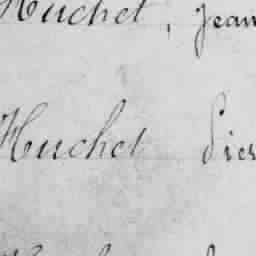 Huchet, Jean
Huchet Pier